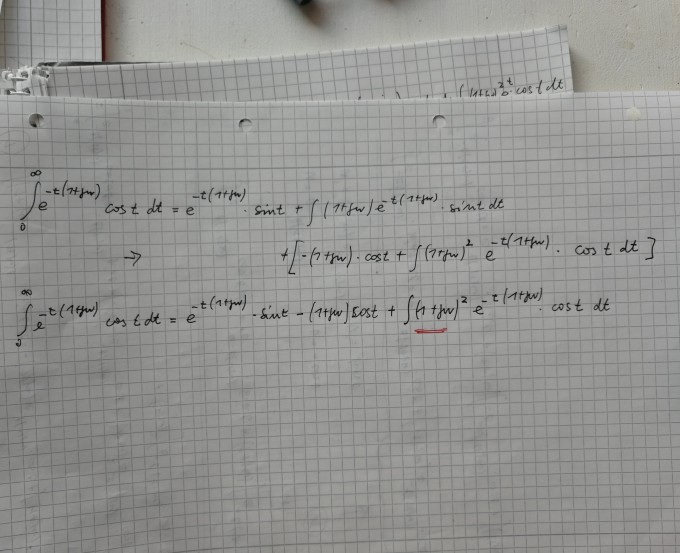 cos t dt
∞
∫ e^{-t(1+jw)} cos t dt = e^{-t(1+jw)} · sin t + ∫ (1+jw) e^{-t(1+jw)} · sin t dt
0
→ + [ -(1+jw) · cos t + ∫ (1+jw)² e^{-t(1+jw)} · cos t dt ]
∞
∫ e^{-t(1+jw)} cos t dt = e^{-t(1+jw)} · sin t - (1+jw) cos t + ∫ (1+jw)² e^{-t(1+jw)} · cos t dt
0